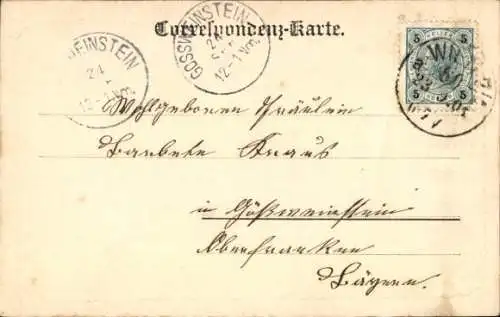 Correspondenz-Karte.
GÖSSWEINSTEIN
24
12-1 Nm.
WEINSTEIN
24
12-1 Nm.
5 5
5 5
WIE
Wohlgeboren Fräulein
Barbete Kraus
in Gößweinstein
Oberfranken
Bayern.